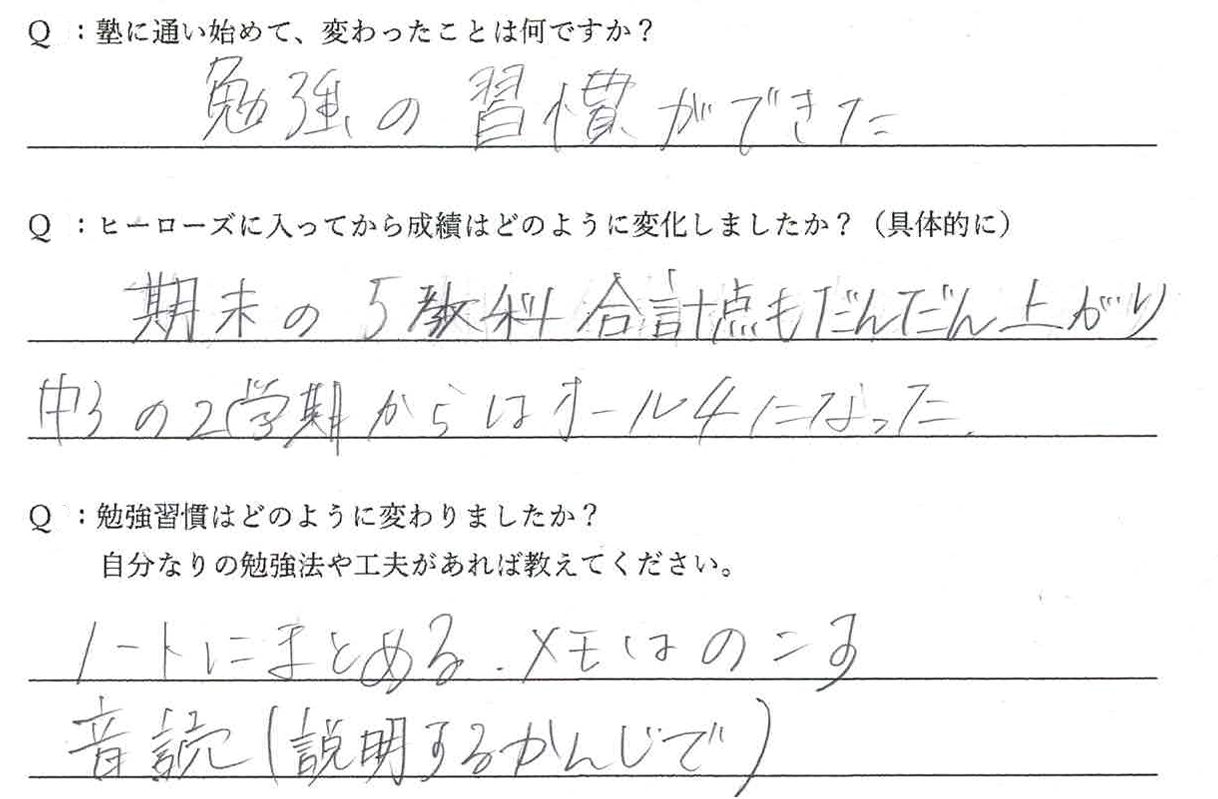 Q ：塾に通い始めて、変わったことは何ですか？
勉強の習慣ができた
Q ：ヒーローズに入ってから成績はどのように変化しましたか？（具体的に）
期末の5教科合計点もだんだん上がり
中3の2学期からはオール4になった.
Q ：勉強習慣はどのように変わりましたか？
自分なりの勉強法や工夫があれば教えてください。
ノートにまとめる.メモはのこす
音読(説明するかんじで)